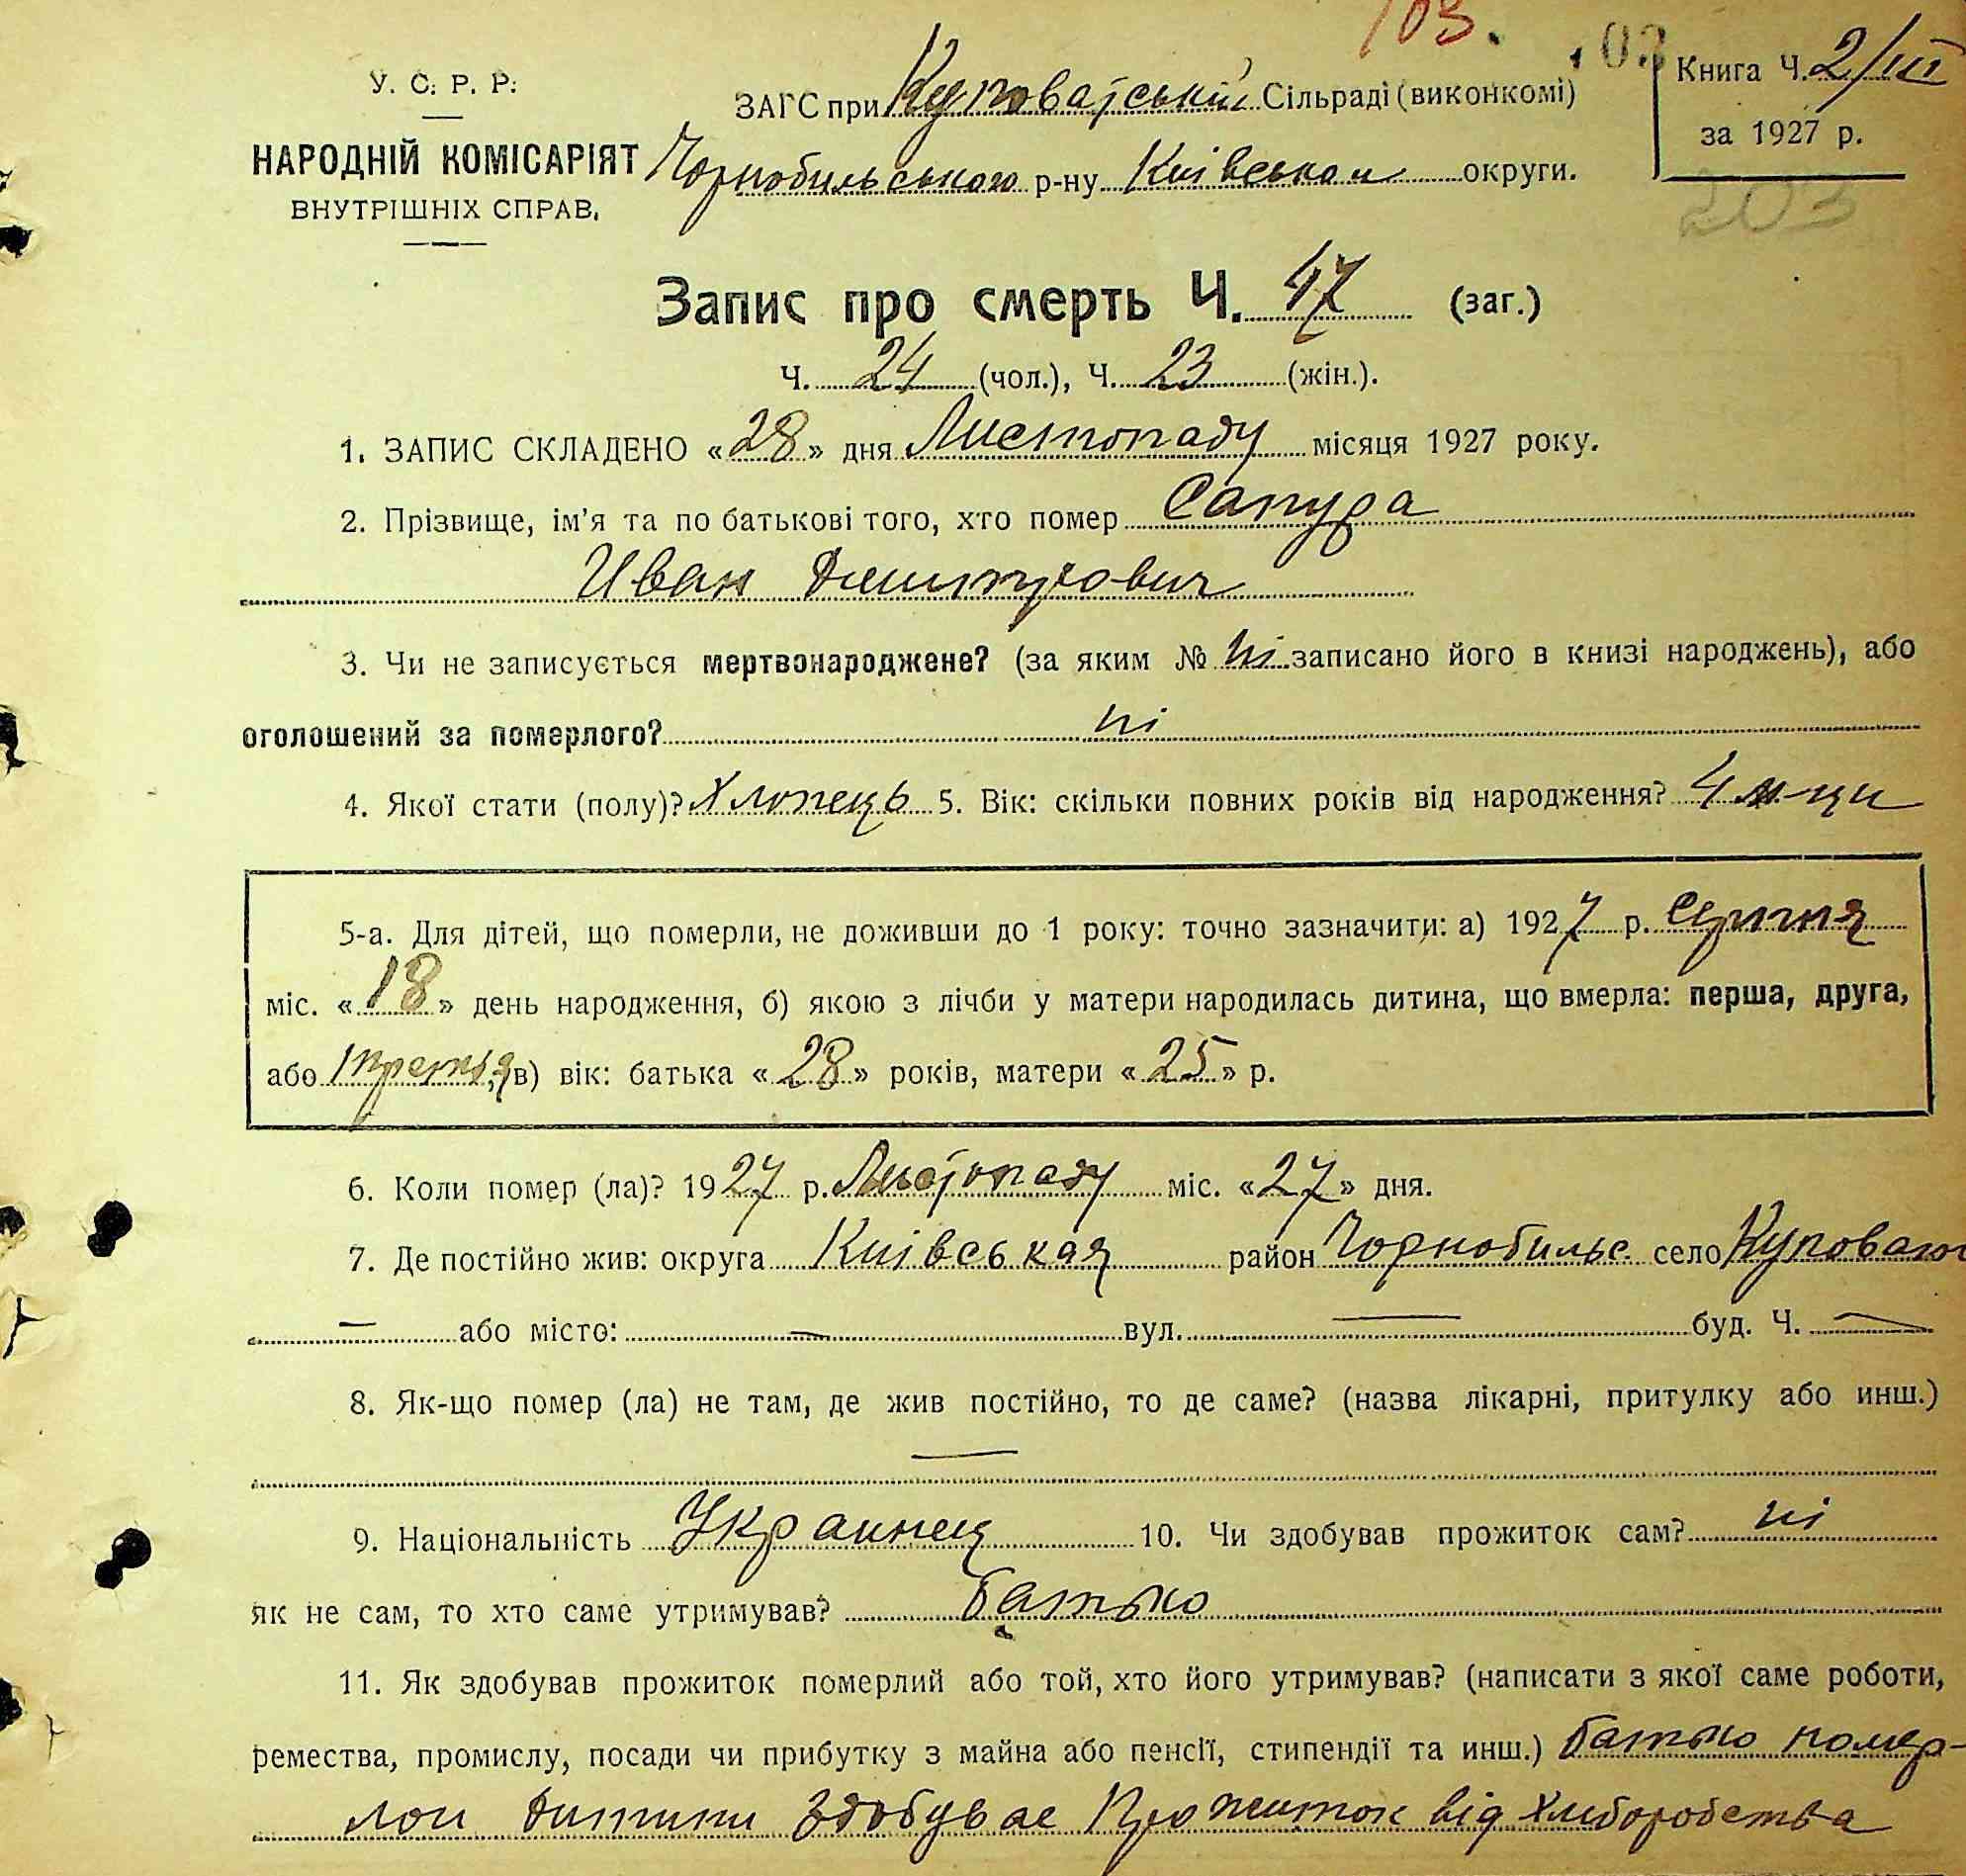 103.
103
У. С. Р. Р.
НАРОДНІЙ КОМІСАРІЯТ
ВНУТРІШНІХ СПРАВ.
ЗАГС при Куповатській Сільраді (виконкомі)
Чорнобильського р-ну Київськои округи.
Книга Ч. 2/III
за 1927 р.
203
Запис про смерть Ч. 47 (заг.)
Ч. 24 (чол.), Ч. 23 (жін.).
1. ЗАПИС СКЛАДЕНО «28» дня Листопаду місяця 1927 року.
2. Прізвище, ім'я та по батькові того, хто помер Сапура
Иван Дмитрович
3. Чи не записується мертвонароджене? (за яким № ні записано його в книзі народжень), або
оголошений за померлого? ні
4. Якої стати (полу)? Хлопець 5. Вік: скільки повних років від народження? 4 м-ци
5-а. Для дітей, що померли, не доживши до 1 року: точно зазначити: а) 1927 р. Серпня
міс. «18» день народження, б) якою з лічби у матери народилась дитина, що вмерла: перша, друга,
або третья, в) вік: батька «28» років, матери «25» р.
6. Коли помер (ла)? 1927 р. Листопаду міс. «27» дня.
7. Де постійно жив: округа Київськая район Чорнобильс. село Куповатое
— або місто: — вул. — буд. Ч. —
8. Як-що помер (ла) не там, де жив постійно, то де саме? (назва лікарні, притулку або инш.)
—
9. Національність Украинец 10. Чи здобував прожиток сам? ні
як не сам, то хто саме утримував? батько
11. Як здобував прожиток померлий або той, хто його утримував? (написати з якої саме роботи,
ремества, промислу, посади чи прибутку з майна або пенсії, стипендії та инш.) батько помер-
лои дитини здобувае прожиток від хлиборобства